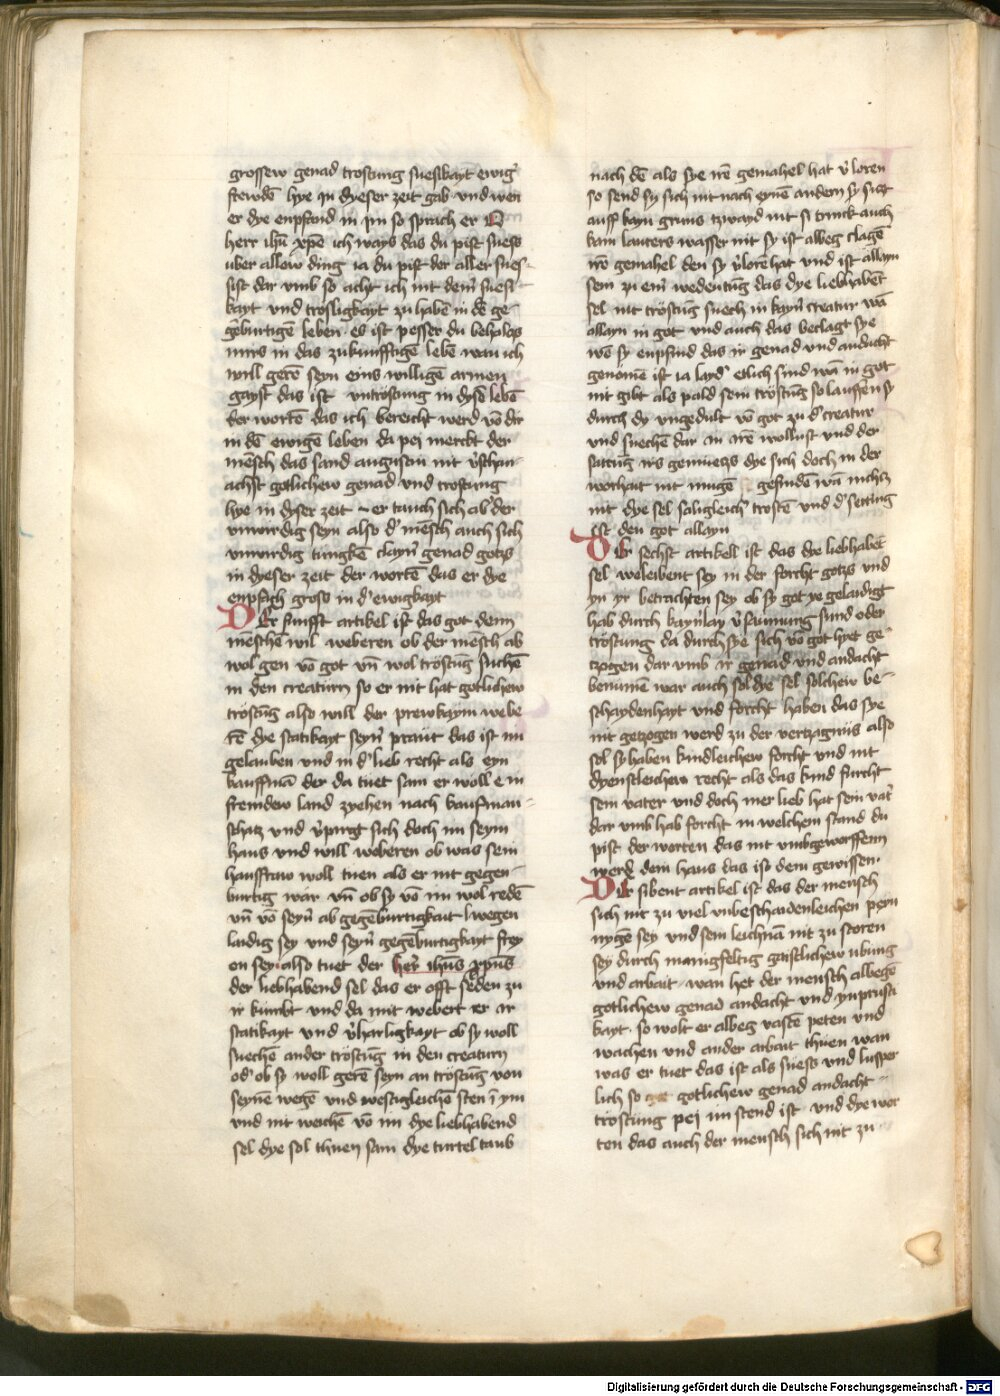 grossew genad trostung suessikayt ewig᷑
frewdē hye in dyeser zeit gab · vnd wen
er dye enpfand in im so sprach er O
herr ihū xpē ich ways das du pist suess
uber allew ding ia du pist der aller sues-
sist dar vmb so acht ich nit dem᷑ suessi
kayt vnd trostigkayt zu habē in dē ge-
geburtigē leben · es ist pesser du behalcs
mirs in das zukunfftigē lebē wan ich
will gerē seyn eins willigē armen
gayst das ist vntrostung in dysē lebē
der wortē das ich bereicht werd vō dir
in dē ewigē leben da pei merckt der
mēsch das sand augustin nit v᷑schm-
achst gotlichew genad vnd trostung
hye in dyser zeit er tauch sich ab᷑ der
vnwirdig seyn also d᷑ mēsch auch sich
vnwirdig tungkē clayn᷑ genad gotzs
in dyeser zeit der wortē das er dye
enpfach gross in d᷑ ewigkayt
DEr funfft artikel ist das got denn
meschē wil weberen ob der mēsch ab
wol gen vō got vn̄ wol tröstūg suchē
in den creaturn so er nit hat gotlichew
tröstūg also will der prewkaym webe
rē dye statikayt seyn᷑ praut das ist im
gelauben vnd in d᷑ lieb recht als eyn
kauffmā der da tuet sam er woll e in
fremdew land zyehen nach kaufman-
schatz vnd v᷑pirgt sich doch im seym
haus vnd will weberen ob was sein
hausfraw woll tuen als er nit gegen-
burtig wār vn̄ ob sy vō im wol redē
vn̄ vō seyn᷑ ab gegēburtigkait wegen
laidig sey vnd seyn᷑ gegēburtigkayt frey
en sey also tuet der her᷑ ihūs xpūs
der liebhabend sel das er offt selden zu
ir kumbt vnd da mit webert er ir
statikayt vnd v᷑harligkayt ob sy woll
suechē ander tröstūg in den creaturn
od᷑ ob sy woll gerē seyn an tröstūg von
seynē wegē vnd vestigleichē sten ī ym
vnd nit weichē vō im dye liebhabend
sel dye sol thuen sam dye turtel taub
nach dē als sye irē gemahel hat v᷑loren
so send sy sich nit nach eynē andern sy siczt
auff kayn gruns tzwayd nit si trinck auch
kain lauters wasser nit sy ist albeg clagē
irē gemahel den sy v᷑lorē hat vnd ist allayn
sein zu em᷑ wedeutūg das dye liebhabēt
sel nit tröstūg suech in kayn᷑ creatur wā
allayn in got vnd auch das beclagt sye
wē sy enpfind das ir genad vnd andacht
genomē ist ia layd᷑ etlich sind wā in got
nit gibt als pald sein tröstūg so lauffen sy
durch dy vngedult vō got zu d᷑ creatur
vnd suechē dar in irē wollust vnd der
sattūg irs gemuetzs dye sich doch in der
worhait nit mugē gesindē wā nichtz
mit dye sel saligleich᷑ trostē vnd d᷑setting
ist den got allayn
DEr sechst artikell ist das dye liebhabēt
sel weleibent sey in der forcht gotzs vnd
yn yr betrachten sey ob sy got ye gelaidigt
hab durch kayn᷑lay v᷑saumung sund oder
tröstung da durch sye sich vō got hyet ge-
tzogen dar vmb ir genad vnd andacht
benumē war auch sol dye sel solchew be-
schaydenhayt vnd forcht haben das sye
nit getzogen werd zu der vertzagnüs also
sol sy haben kindleichew forcht vnd nit
dyenstleichew recht als das kind furcht
sein vater vnd doch mer lieb hat sein vat᷑
dar vmb hab forcht in welchem stand du
pist der worten das nit vmbgeworffenn
werd dein haus das ist dein gewissen·
DEr sibent artikel ist das der mensch
sich nit zu viel vnbeschaidenleichen peyn
nygē sey vnd sein leichnā nit zu storen
sey durch manigfeltig gaistlichew ubung
vnd arbait · wan het der mensch albegē
gotlichew genad andacht vnd ynprunsti
kayt · so wolt er albeg vastē peten vnd
wachen vnd ander arbait thuen wan
was er tuet das ist als suess vnd lusper
lich so gotlichew genad andacht
tröstung pei im stend ist · vnd dye wor
ten das auch der mensch sich nit zu
Digitalisierung gefördert durch die Deutsche Forschungsgemeinschaft - DFG